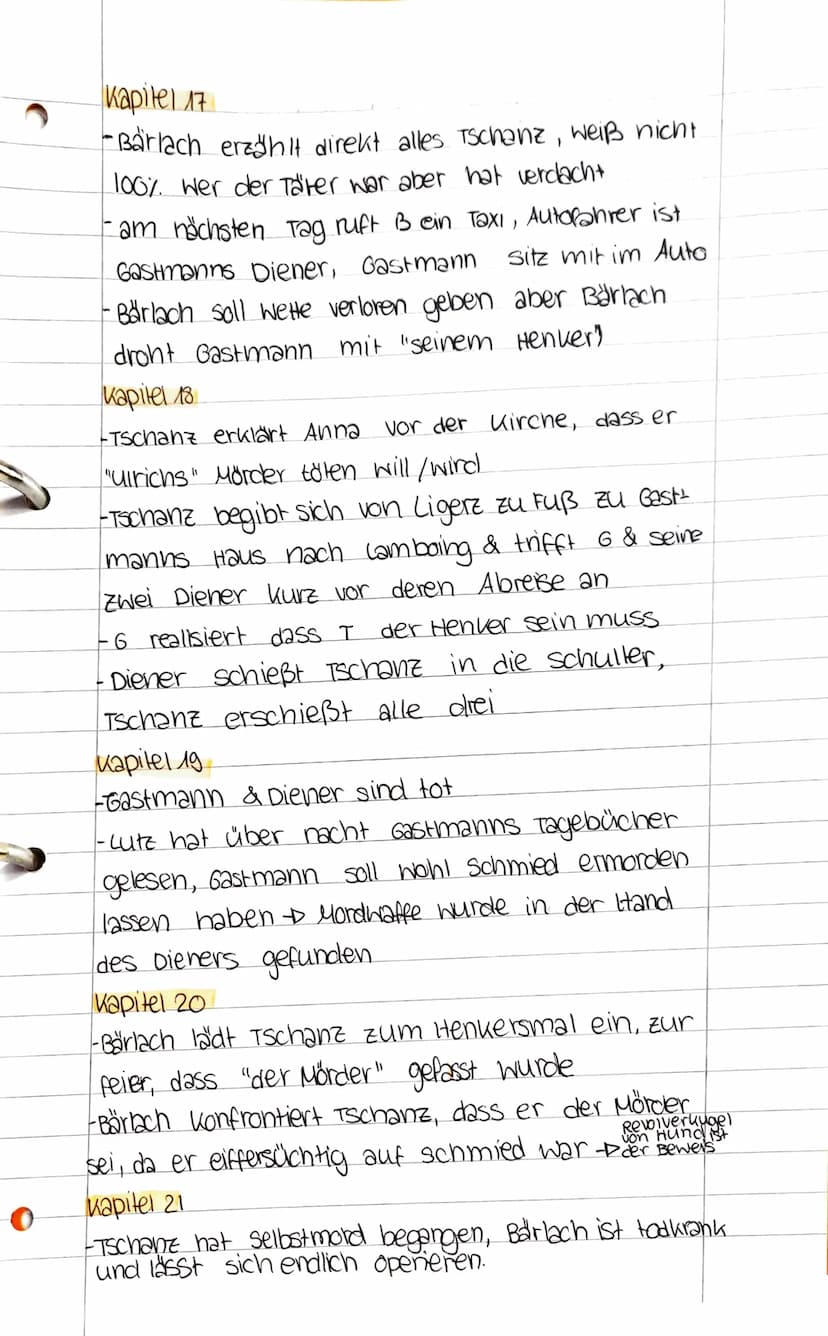 Kapitel 17
- Bärlach erzählt direkt alles Tschanz, weiß nicht
100% wer der Täter war aber hat verdacht
- am nächsten Tag ruft B ein Taxi, Autofahrer ist
Gastmanns Diener, Gastmann sitz mit im Auto
- Bärlach soll Wette verloren geben aber Bärlach
droht Gastmann mit "seinem Henker)
Kapitel 18
- Tschanz erklärt Anna vor der Kirche, dass er
"Ulrichs" Mörder töten will/wird
- Tschanz begibt sich von Ligerz zu Fuß zu Gast-
manns Haus nach Lamboing & trifft G & seine
zwei Diener kurz vor deren Abreise an
- G realisiert dass T der Henker sein muss
- Diener schießt Tschanz in die Schulter,
Tschanz erschießt alle drei
Kapitel 19
- Gastmann & Diener sind tot
- Lutz hat über nacht Gastmanns Tagebücher
gelesen, Gastmann soll wohl Schmied ermorden
lassen haben → Mordwaffe wurde in der Hand
des Dieners gefunden
Kapitel 20
- Bärlach lädt Tschanz zum Henkersmal ein, zur
feier, dass "der Mörder" gefasst wurde
- Bärlach konfrontiert Tschanz, dass er der Mörder
sei, da er eiffersüchtig auf Schmied war → Revolverkugel
von Hund ist
der Beweis
Kapitel 21
- Tschanz hat Selbstmord begangen, Bärlach ist todkrank
und lässt sich endlich operieren.